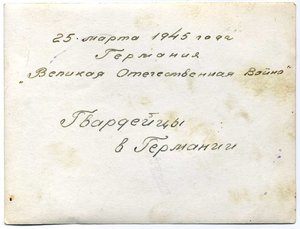 25 марта 1945 года
Германия
"Великая Отечественная Война"
Гвардейцы
в Германии